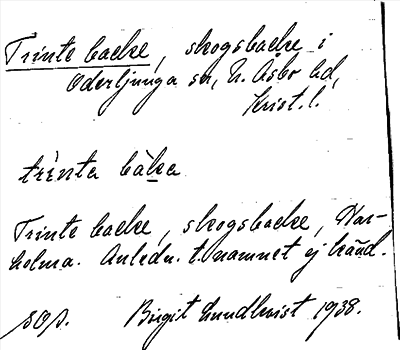 Trinte backe, skogsbacke i
Oderljunga sn, N. Åsbo hd,
Krist. l.
trìnta bàka
Trinte backe, skogsbacke, Har-
holma. Anledn. t. namnet ej känd.
Birgit Lundkvist 1938.